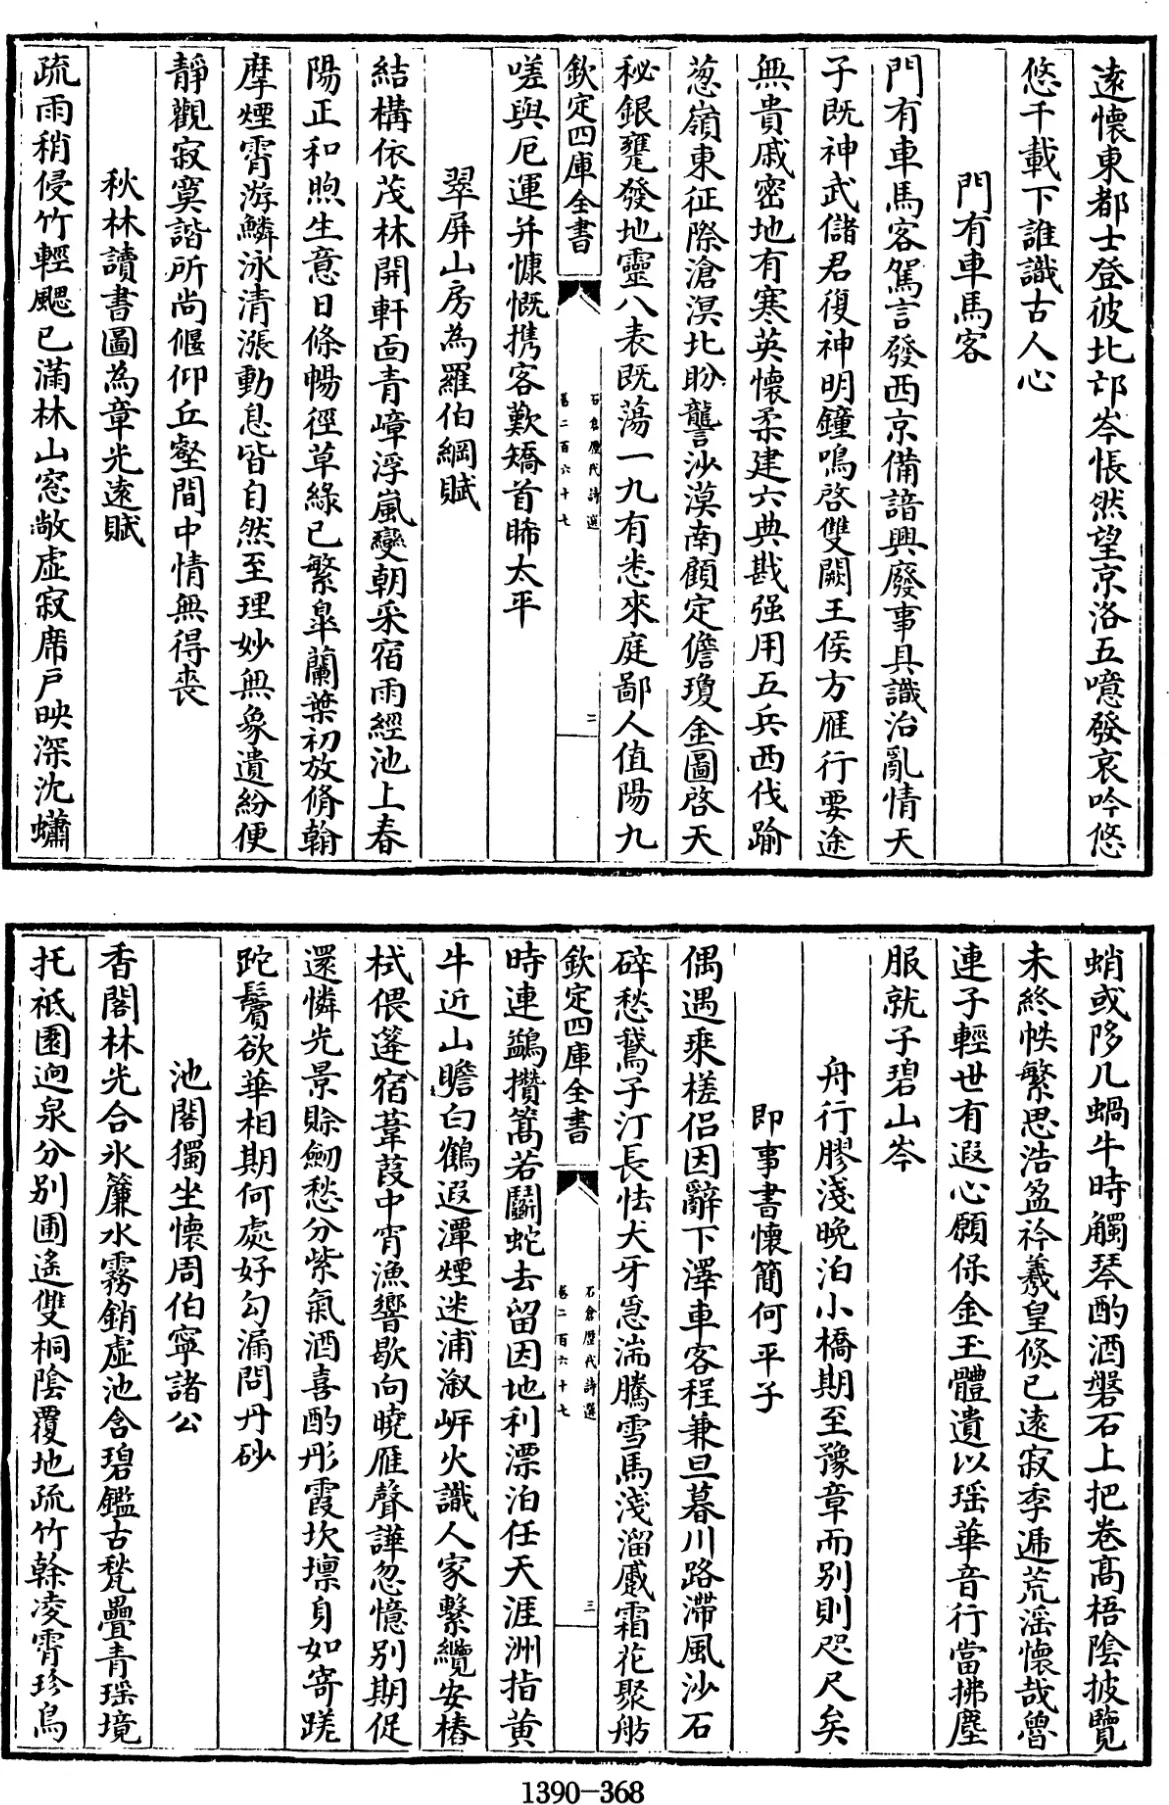 遠懷東都士登彼北邙岑悵然望京洛五噫發哀吟悠
悠千載下誰識古人心
門有車馬客
門有車馬客駕言發西京備諳興廢事具識治亂情天
子既神武儲君復神明鐘鳴啓雙闕王侯方雁行要途
無貴戚密地有寒英懷柔建六典戡强用五兵西伐踰
葱嶺東征際滄溟北盼讋沙漠南顧定儋瓊金圖啓天
秘銀甕發地靈八表既蕩一九有悉來庭鄙人值陽九
欽定四庫全書
石倉歷代詩選
卷二百六十七
二
嗟與厄運并慷慨携客歎矯首睎太平
翠屏山房為羅伯綱賦
結構依茂林開軒面青嶂浮嵐變朝采宿雨經池上春
陽正和煦生意日條暢徑草綠已繁皐蘭葉初放脩翰
摩煙霄游鱗泳清漲動息皆自然至理妙無象遺紛便
靜觀寂寞諧所尚偃仰丘壑間中情無得喪
秋林讀書圖為章光遠賦
疏雨稍侵竹輕颸已滿林山窓敞虛寂席戶映深沈蠨
蛸或移几蝸牛時觸琴酌酒磐石上把卷髙梧陰披覽
未終帙繁思浩盈衿羲皇倏已遠寂季逓荒滛懷哉魯
連子輕世有遐心願保金玉體遺以瑶華音行當拂塵
服就子碧山岑
舟行膠淺晚泊小橋期至豫章而别則咫尺矣
即事書懷簡何平子
偶遇乘槎侣因辭下澤車客程兼旦暮川路滯風沙石
碎愁鵞子汀長怯犬牙急湍騰雪馬淺溜蹙霜花聚舫
欽定四庫全書
石倉歷代詩選
卷二百六十七
三
時連鷁攢篙若鬭蛇去留因地利漂泊任天涯洲指黄
牛近山瞻白鶴遐潭煙迷浦溆岸火識人家繫纜安樁
杙偎篷宿葦葭中宵漁響歇向曉雁聲譁忽憶别期促
還憐光景賒劒愁分紫氣酒喜酌彤霞坎壈身如寄蹉
跎鬢欲華相期何處好勾漏問丹砂
池閣獨坐懷周伯寧諸公
香閣林光合氷簾水霧銷虛池含碧鑑古甃疊青瑶境
托祇園迥泉分别圃遙雙桐陰覆地疏竹幹凌霄珍鳥
1390-368